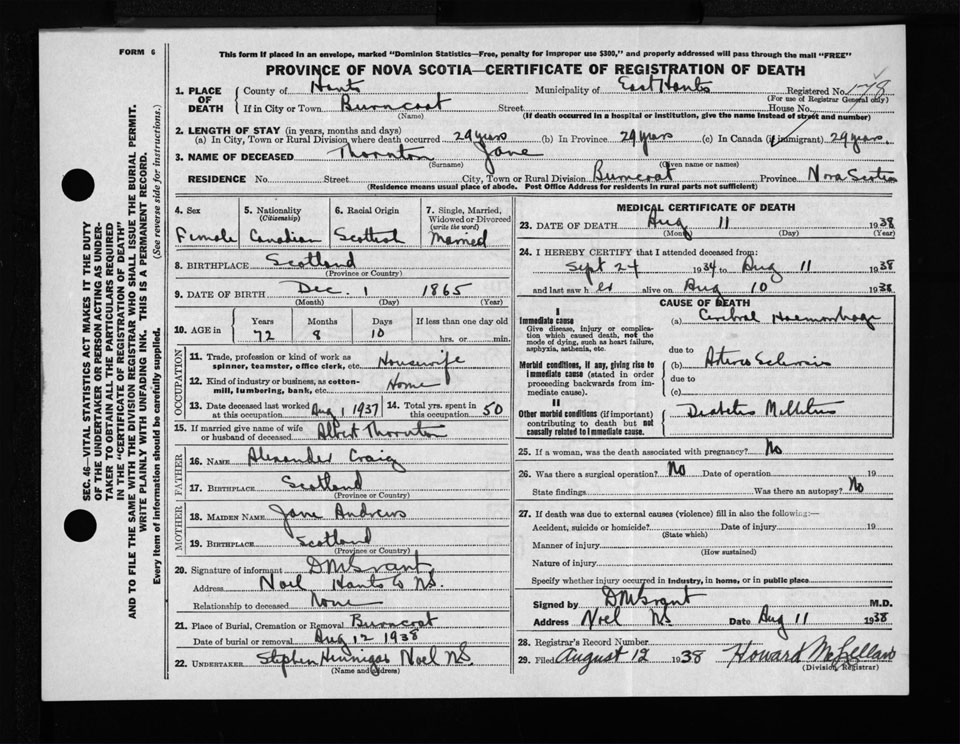 FORM 6
This form if placed in an envelope, marked "Dominion Statistics—Free, penalty for improper use $300," and properly addressed will pass through the mail "FREE"
PROVINCE OF NOVA SCOTIA—CERTIFICATE OF REGISTRATION OF DEATH
1. PLACE OF DEATH
County of Hants Municipality of East Hants Registered No.
(For use of Registrar General only)
If in City or Town Burncoat Street House No.
(Name) (If death occurred in a hospital or institution, give the name instead of street and number)
2. LENGTH OF STAY (in years, months and days)
(a) In City, Town or Rural Division where death occurred 29 years (b) In Province 29 years (c) In Canada (if immigrant) 29 years.
3. NAME OF DECEASED Thornton Jane
(Surname) (Given name or names)
RESIDENCE No. Street City, Town or Rural Division Burncoat Province Nova Scotia
(Residence means usual place of abode. Post Office Address for residents in rural parts not sufficient)
4. Sex Female
5. Nationality (Citizenship) Canadian
6. Racial Origin Scottish
7. Single, Married, Widowed or Divorced (write the word) Married
8. BIRTHPLACE Scotland
(Province or Country)
9. DATE OF BIRTH Dec. 1 1865
(Month) (Day) (Year)
10. AGE in Years 72 Months 8 Days 10 If less than one day old hrs. or min.
OCCUPATION
11. Trade, profession or kind of work as spinner, teamster, office clerk, etc. Housewife
12. Kind of industry or business, as cotton-mill, lumbering, bank, etc. Home
13. Date deceased last worked at this occupation Aug 1 1937 14. Total yrs. spent in this occupation 50
15. If married give name of wife or husband of deceased Albert Thornton
FATHER
16. NAME Alexander Craig
17. BIRTHPLACE Scotland
(Province or Country)
MOTHER
18. MAIDEN NAME Jane Andrews
19. BIRTHPLACE Scotland
(Province or Country)
20. Signature of informant D M Grant
Address Noel Hants Co NS.
Relationship to deceased None
21. Place of Burial, Cremation or Removal Burncoat
Date of burial or removal Aug 12 1938
22. UNDERTAKER Stephen Hennigar Noel NS
(Name and address)
MEDICAL CERTIFICATE OF DEATH
23. DATE OF DEATH Aug 11 1938
(Month) (Day) (Year)
24. I HEREBY CERTIFY that I attended deceased from:
Sept 24 1934 to Aug 11 1938
and last saw her alive on Aug 10 1938
CAUSE OF DEATH
I
Immediate cause
Give disease, injury or complication which caused death, not the mode of dying, such as heart failure, asphyxia, asthenia, etc.
(a) Cerebral Haemorrhage
due to
Morbid conditions, if any, giving rise to immediate cause (stated in order proceeding backwards from immediate cause).
(b) Arterio Sclerosis
due to
(c)
II
Other morbid conditions (if important) contributing to death but not causally related to immediate cause.
Diabetes Mellitus
25. If a woman, was the death associated with pregnancy? No
26. Was there a surgical operation? No Date of operation 19
State findings Was there an autopsy? No
27. If death was due to external causes (violence) fill in also the following:—
Accident, suicide or homicide? Date of injury 19
(State which)
Manner of injury
(How sustained)
Nature of injury
Specify whether injury occurred in industry, in home, or in public place
Signed by D M Grant M.D.
Address Noel NS Date Aug 11 1938
28. Registrar's Record Number
29. Filed August 12 1938 Howard McLellan
(Division Registrar)
SEC. 46—VITAL STATISTICS ACT MAKES IT THE DUTY
OF THE UNDERTAKER OR PERSON ACTING AS UNDER-
TAKER TO OBTAIN ALL THE PARTICULARS REQUIRED
IN THE "CERTIFICATE OF REGISTRATION OF DEATH"
AND TO FILE THE SAME WITH THE DIVISION REGISTRAR WHO SHALL ISSUE THE BURIAL PERMIT.
WRITE PLAINLY WITH UNFADING INK. THIS IS A PERMANENT RECORD.
Every item of information should be carefully supplied. (See reverse side for instructions.)